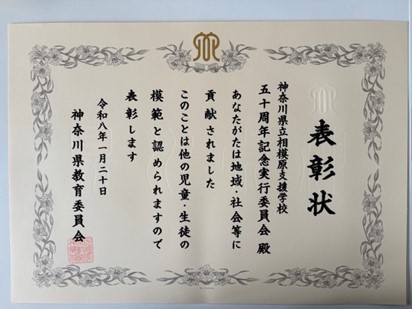 表彰状
神奈川県立相模原支援学校
五十周年記念実行委員会 殿
あなたがたは地域・社会等に
貢献されました
このことは他の児童・生徒の
模範と認められますので
表彰します
令和八年一月二十日
神奈川県教育委員会